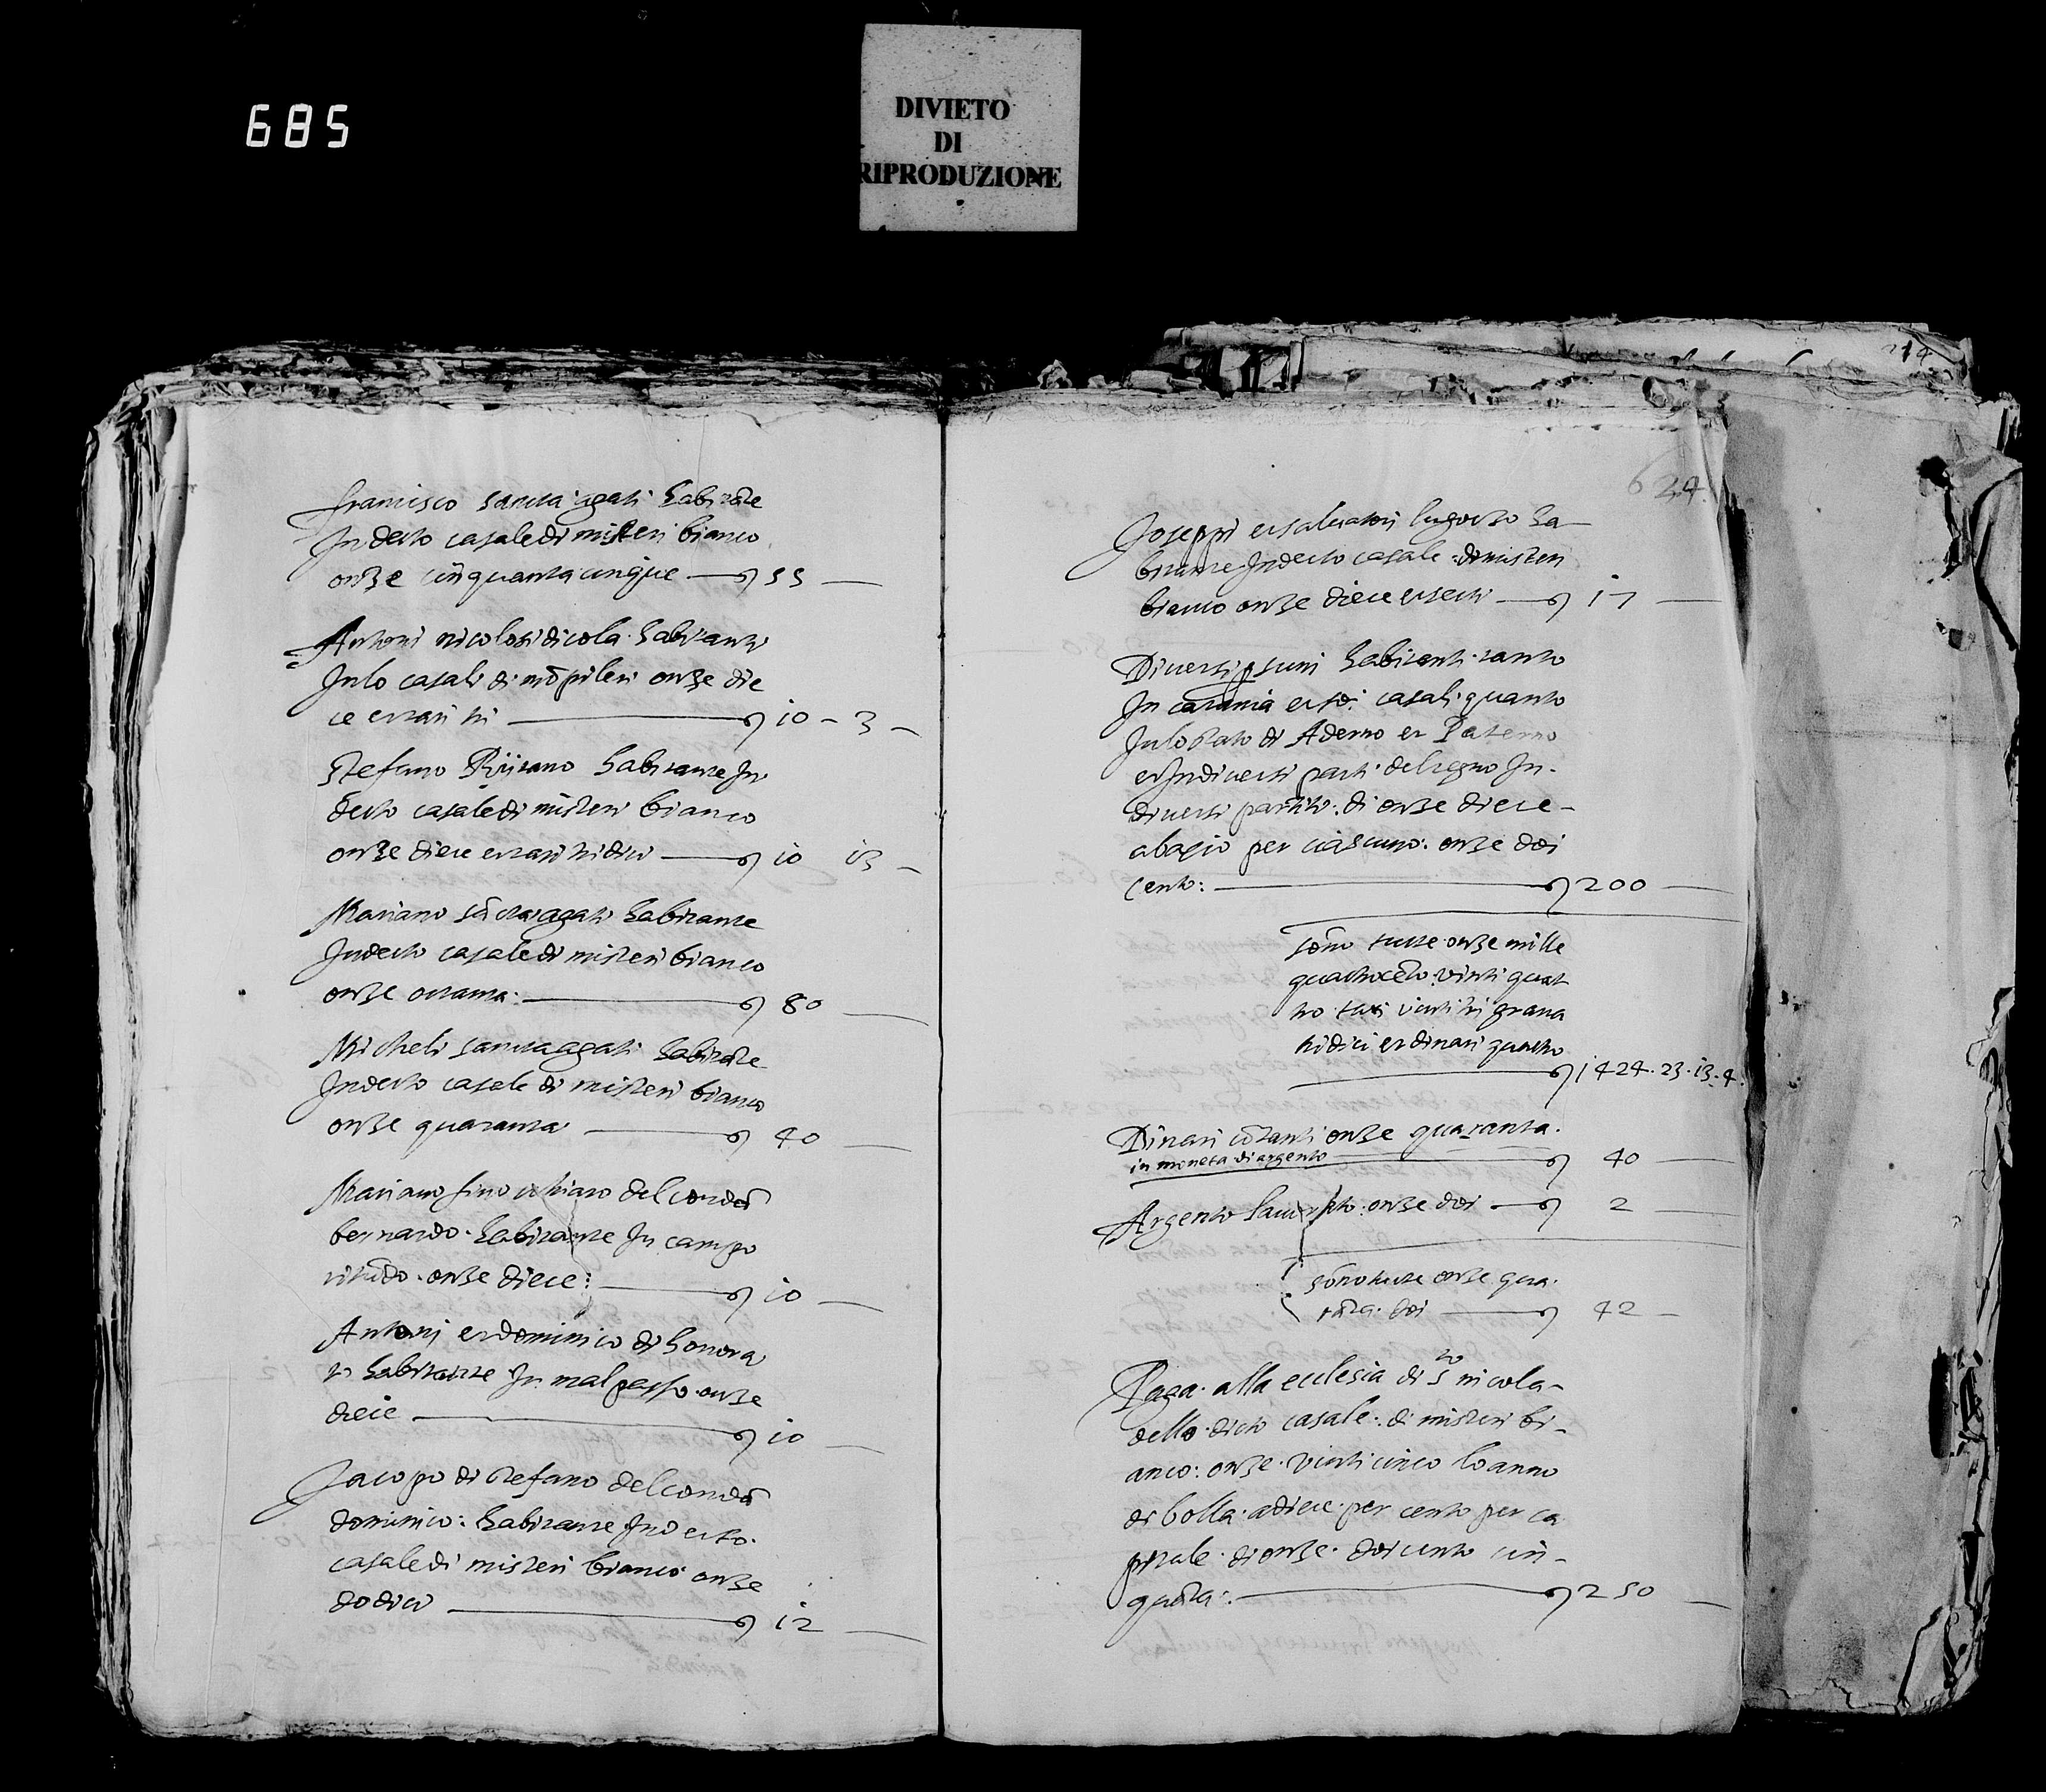 685
DIVIETO
DI
RIPRODUZIONE
214
francisco santa agati habitāte
In detto casale di misteri bianco
onze cinquanta cinque 55
Antoni nicolosi di cola habitanti
In lo casali di mōpileri onze die
ce et tari tri 10 - 3 -
Stefano habitante In
detto casale di misteri bianco
onze diece et tari tridici 10 13 -
Mariano sāta agati habitante
In detto casale di misteri bianco
onze ottanta: 80
Micheli santa agati habitāte
In detto casale di misteri bianco
onze quaranta 40
Mariano fino del condā
bernardo habitante In campo
ritūdo onze diece: 10
Antoni et dominico di honora
to habitante In mal passo onze
diece 10
Jacopo di stefano del condā
dominico: habitante In detto
casale di misteri bianco onze
dodici 12
624
Joseppi et salvatori ha
bitante In detto casale di misteri
bianco onze diece et setti 17
Diversi psuni habitanti tanto
In catania et soi casali quanto
In lo stato di Aderno et Paterno
et In diversi parti del regno In
diversi partite: di onze diece
abaxio per ciascuno: onze doi
cento: 200
sōno tutte onze mille
quattrocēto vinti quat
tro tari vinti tri grana
tridici et dinari quatro
1424.23.13.4
Dinari cōtanti onze quaranta.
in moneta di argento 40
Argento onze doi 2
sōno tutte onze qua
rāta doi 42
Paga alla ecclesia di sto nicola
dello dicto casale: di misteri bi
anco: onze vinti cinco lo anno
di bolla a diece per cento per ca
pitale di onze doi cento cin
quāta: 250